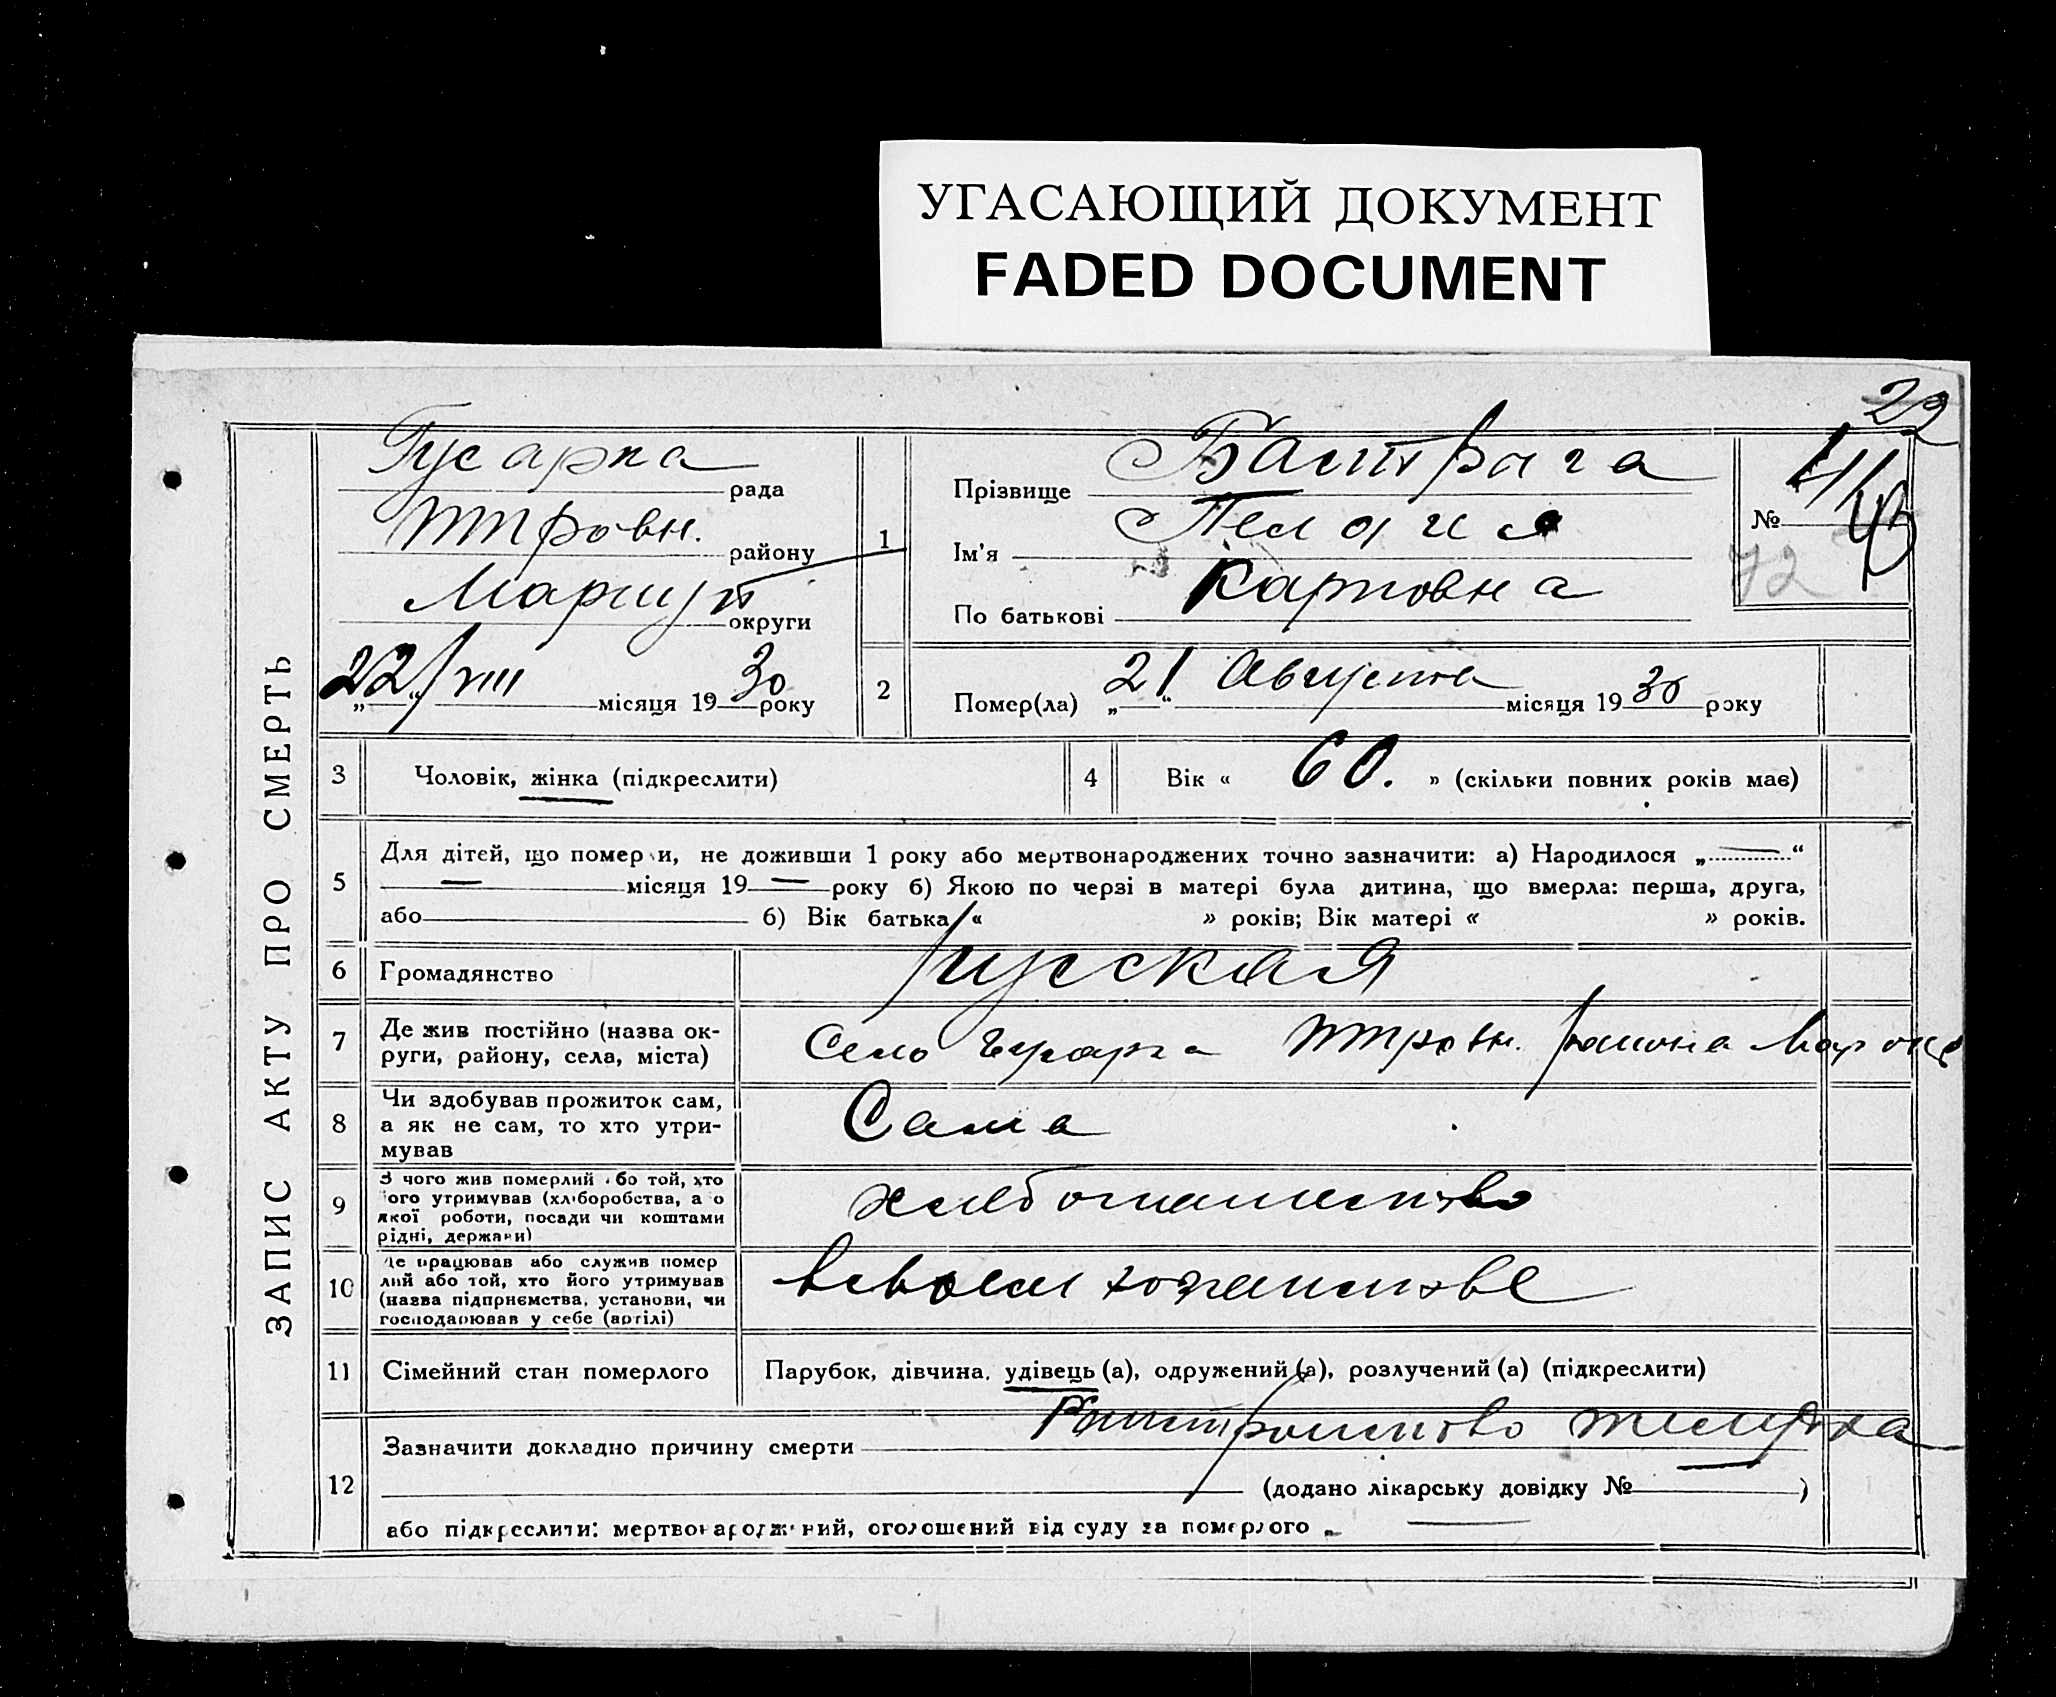 УГАСАЮЩИЙ ДОКУМЕНТ
FADED DOCUMENT
22
ЗАПИС АКТУ ПРО СМЕРТЬ
Гусарка рада
району
Мариуп округи
22/VIII місяця 1930 року
1
Прізвище
Ім'я Пелагия
По батькові Карповна
№ 41/
72
2 Помер(ла) „21“ Августа місяця 1930 року
3 Чоловік, жінка (підкреслити)
4 Вік « 60. » (скільки повних років має)
5 Для дітей, що померли, не доживши 1 року або мертвонароджених точно зазначити: а) Народилося „—“
— місяця 19— року б) Якою по черзі в матері була дитина, що вмерла: перша, друга,
або 6) Вік батька « » років; Вік матері « » років.
6 Громадянство русская
7 Де жив постійно (назва ок-
руги, району, села, міста)
Село Гусарка района
8 Чи здобував прожиток сам,
а як не сам, то хто утри-
мував
Сама
9 З чого жив померлий або той, хто
його утримував (хліборобства, а о
якої роботи, посади чи коштами
рідні, держави)
хлебопашество
10 Де працював або служив помер
лий або той, хто його утримував
(назва підприємства, установи, чи
господарював у себе (артілі)
в своем хозяистве
11 Сімейний стан померлого Парубок, дівчина, удівець (а), одружений (а), розлучений (а) (підкреслити)
12 Зазначити докладно причину смерти желудка
(додано лікарську довідку № — )
або підкреслити: мертвонароджений, оголошений від суду за померлого „ —